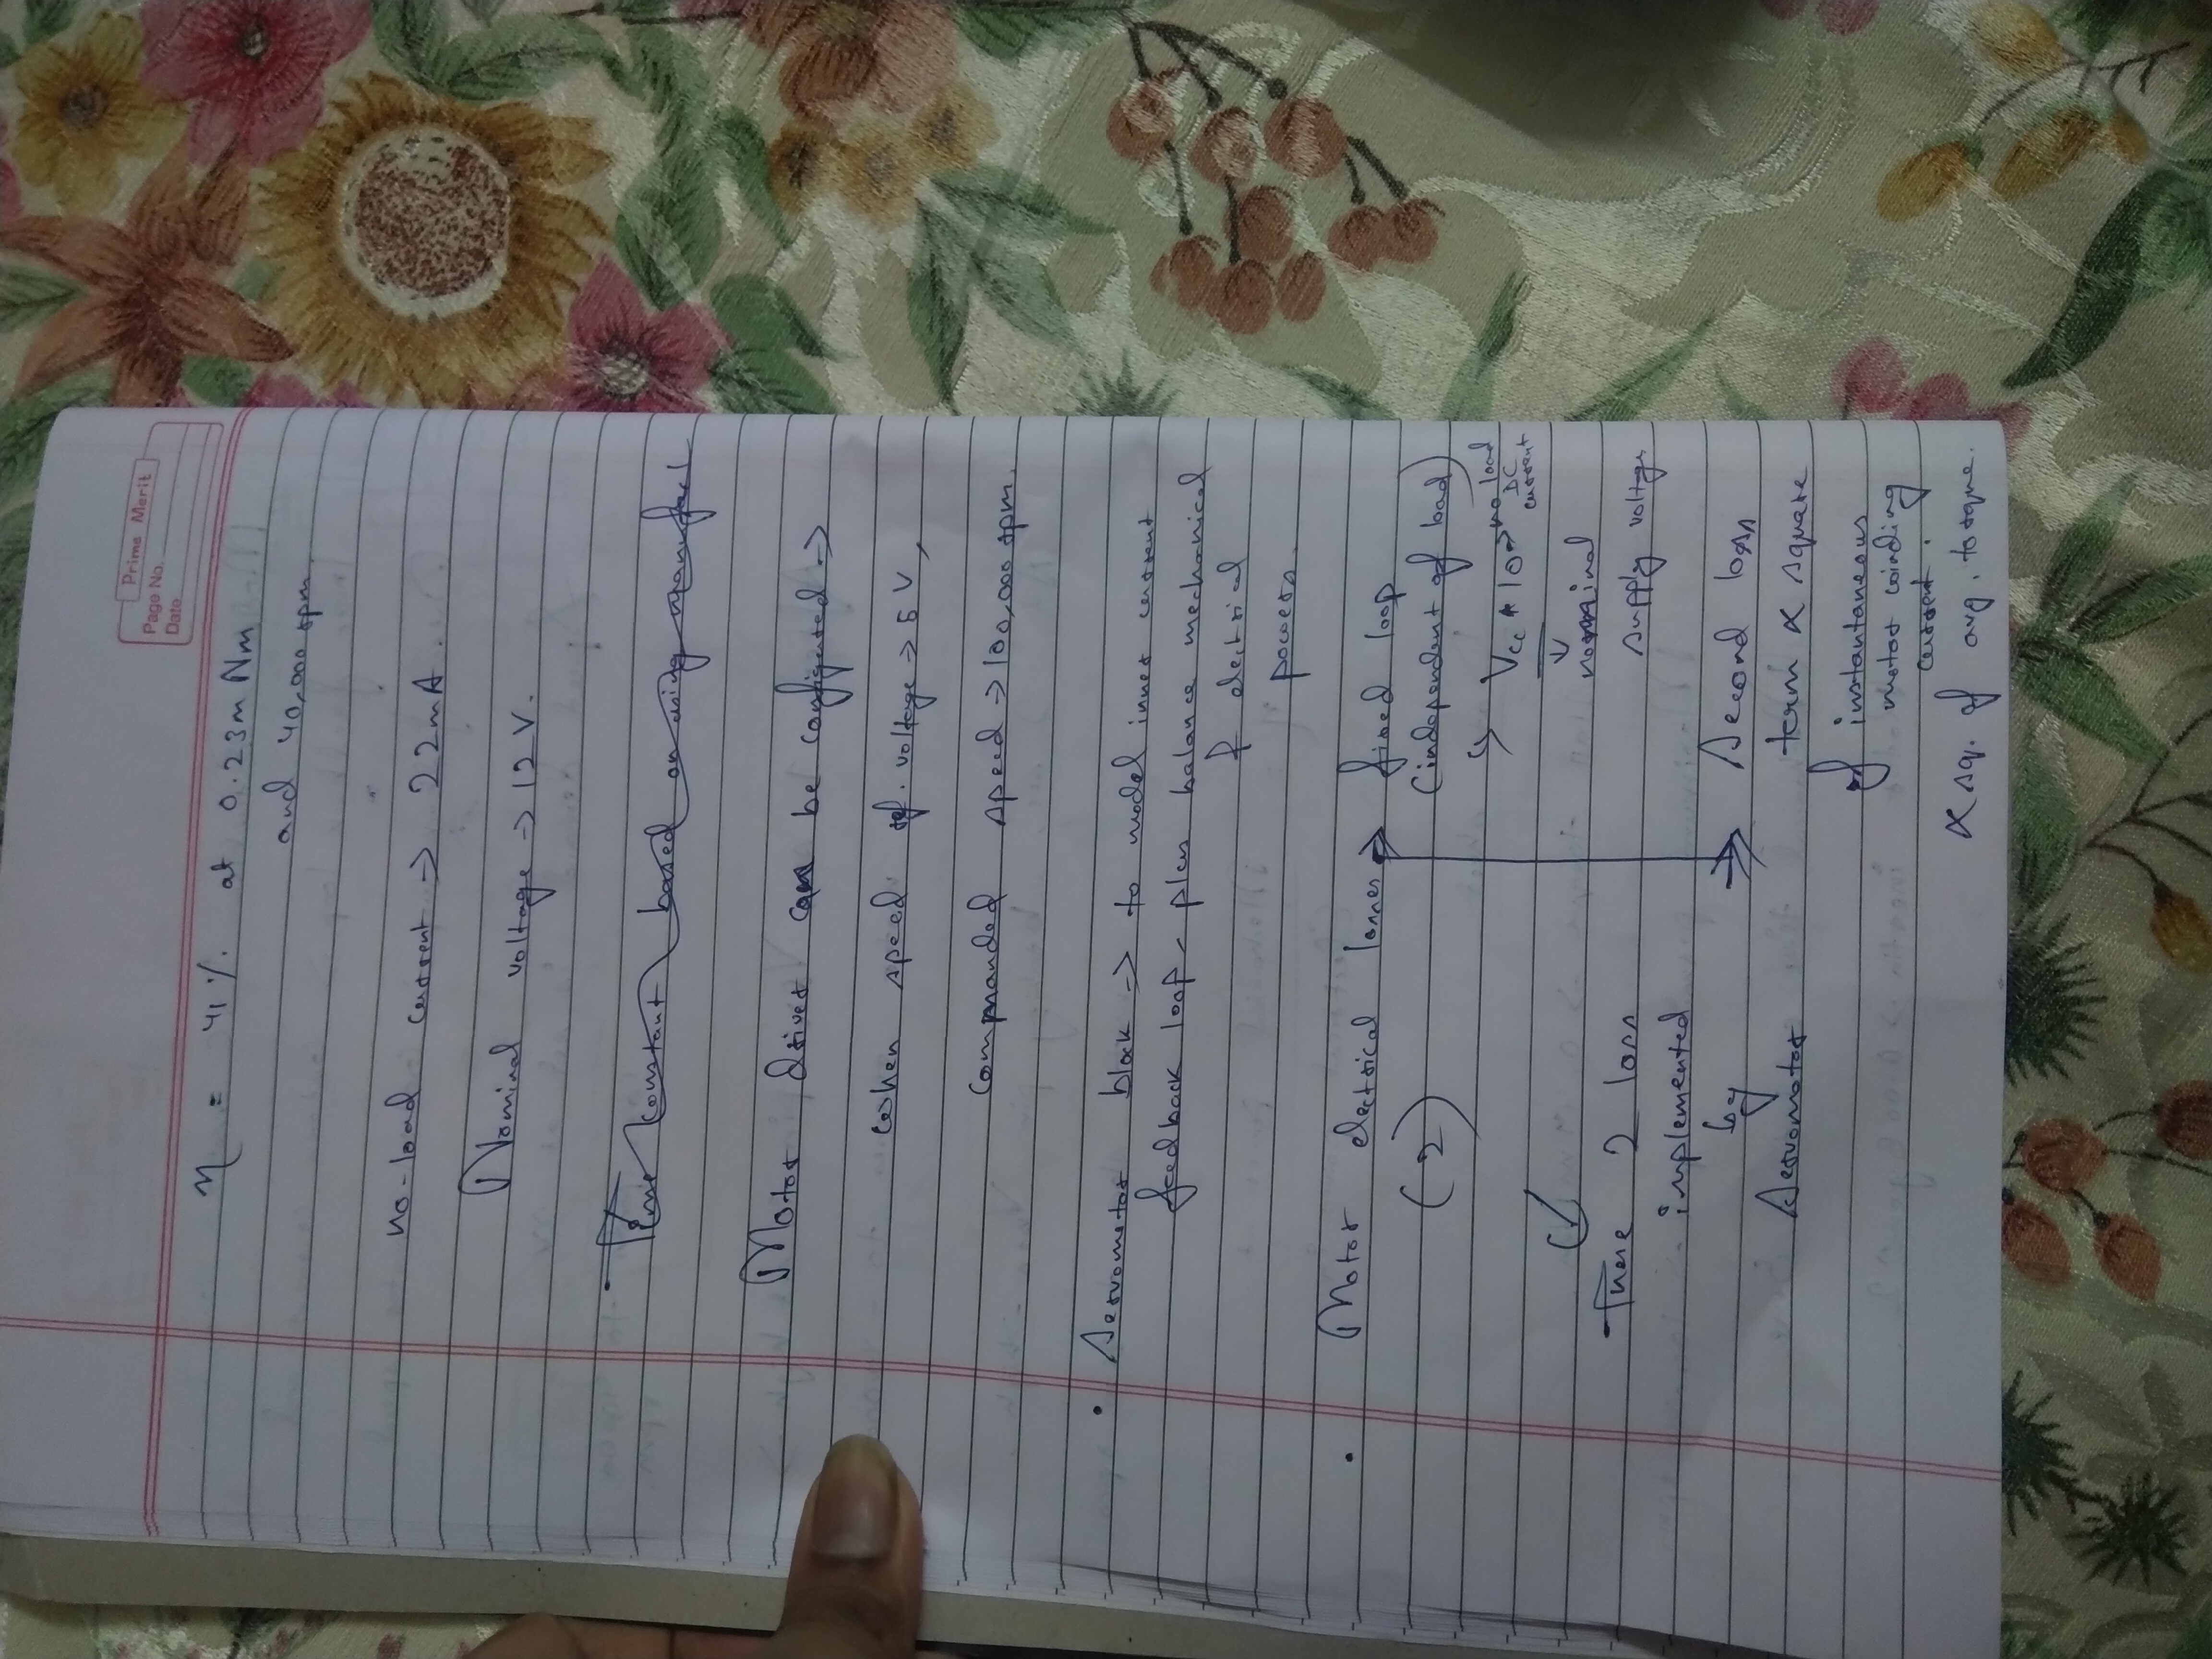 Prime Merit
Page No.
Date
η = 41% at 0.23m Nm
and 40,000 rpm.
no-load current → 22mA.
Nominal voltage → 12 V.
Time constant based on using manufact
Motor driver can be configured →
when speed ref. voltage → 5 V,
commanded speed → 100,000 rpm.
• Servomotor block → to model inner current
feedback loop, plus balance mechanical
& electrical
powers.
• Motor electrical losses → fixed loop
(2)
(independent of load)
↳ Vcc * I0 → no load
DC
current
↓
nominal
supply voltage
These 2 loss
implemented
by
Servomotor
⇒ Second loss
term ∝ square
of instantaneous
motor winding
current.
∝ sq. of avg. torque.